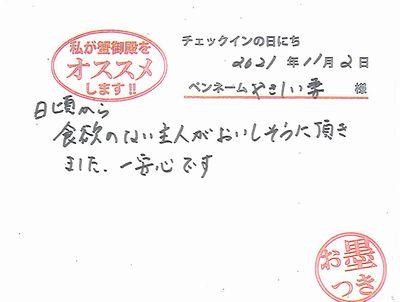 私が蟹御殿を
オススメ
します!!
チェックインの日にち
2021年11月2日
ペンネーム やさしい妻 様
日頃から
食欲のない主人がおいしそうに頂き
ました、一安心です
お墨
つき